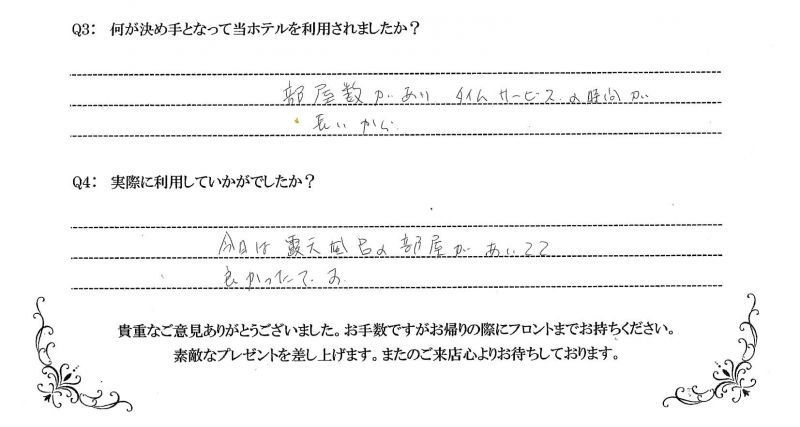 Q3： 何が決め手となって当ホテルを利用されましたか？
部屋数があり タイムサービスの時間が
長いから
Q4： 実際に利用していかがでしたか？
今日は露天風呂の部屋があいてて
良かったです。
貴重なご意見ありがとうございました。お手数ですがお帰りの際にフロントまでお持ちください。
素敵なプレゼントを差し上げます。またのご来店心よりお待ちしております。